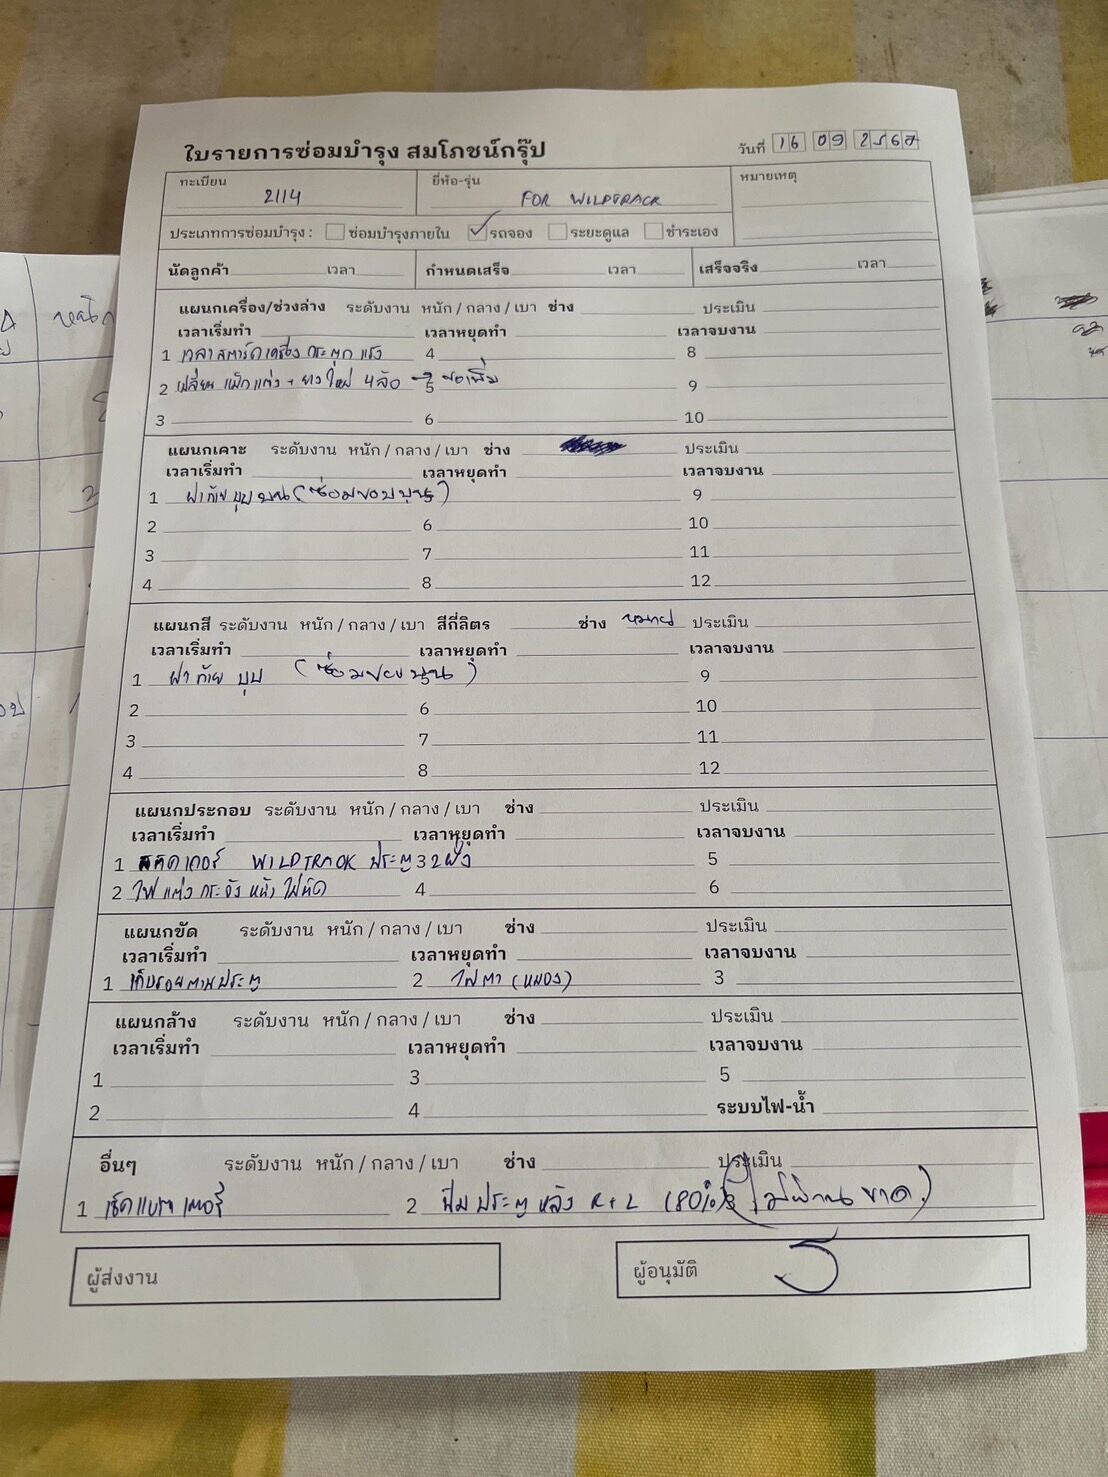 ใบรายการซ่อมบำรุง สมโภชน์กรุ๊ป
วันที่ 16 09 2567
ทะเบียน 2114 ยี่ห้อ-รุ่น FOR WILDTRACK หมายเหตุ
ประเภทการซ่อมบำรุง : ซ่อมบำรุงภายใน ✓ รถจอง ระยะดูแล ชำระเอง
นัดลูกค้า เวลา กำหนดเสร็จ เวลา เสร็จจริง เวลา
แผนกเครื่อง/ช่วงล่าง ระดับงาน หนัก / กลาง / เบา ช่าง ประเมิน
เวลาเริ่มทำ เวลาหยุดทำ เวลาจบงาน
1 เวลาสตาร์ดเครื่อง กระตุก แรง 4 8
2 เปลี่ยน แม็กแต่ง + ยางใหม่ 4 ล้อ → 5 ขอเพิ่ม 9
3 6 10
แผนกเคาะ ระดับงาน หนัก / กลาง / เบา ช่าง ประเมิน
เวลาเริ่มทำ เวลาหยุดทำ เวลาจบงาน
1 ฝาท้าย บุบ บน (ซ่อมขอบบน) 5 9
2 6 10
3 7 11
4 8 12
แผนกสี ระดับงาน หนัก / กลาง / เบา สีกี่ลิตร ช่าง ประเมิน
เวลาเริ่มทำ เวลาหยุดทำ เวลาจบงาน
1 ฝาท้าย บุบ (ซ่อมขอบบน) 5 9
2 6 10
3 7 11
4 8 12
แผนกประกอบ ระดับงาน หนัก / กลาง / เบา ช่าง ประเมิน
เวลาเริ่มทำ เวลาหยุดทำ เวลาจบงาน
1 สติกเกอร์ WILDTRACK ประตู 3 2 ฝั่ง 5
2 ไฟแต่ง กระจัง หน้า ไม่ติด 4 6
แผนกขัด ระดับงาน หนัก / กลาง / เบา ช่าง ประเมิน
เวลาเริ่มทำ เวลาหยุดทำ เวลาจบงาน
1 เก็บรอยตามประตู 2 ไฟตา (หมอง) 3
แผนกล้าง ระดับงาน หนัก / กลาง / เบา ช่าง ประเมิน
เวลาเริ่มทำ เวลาหยุดทำ เวลาจบงาน
1 3 5
2 4 ระบบไฟ-น้ำ
อื่นๆ ระดับงาน หนัก / กลาง / เบา ช่าง ประเมิน
1 เช็คแบตเตอรี่ 2 ฟิมประตูหลัง R+L (80%) 3
ผู้ส่งงาน ผู้อนุมัติ